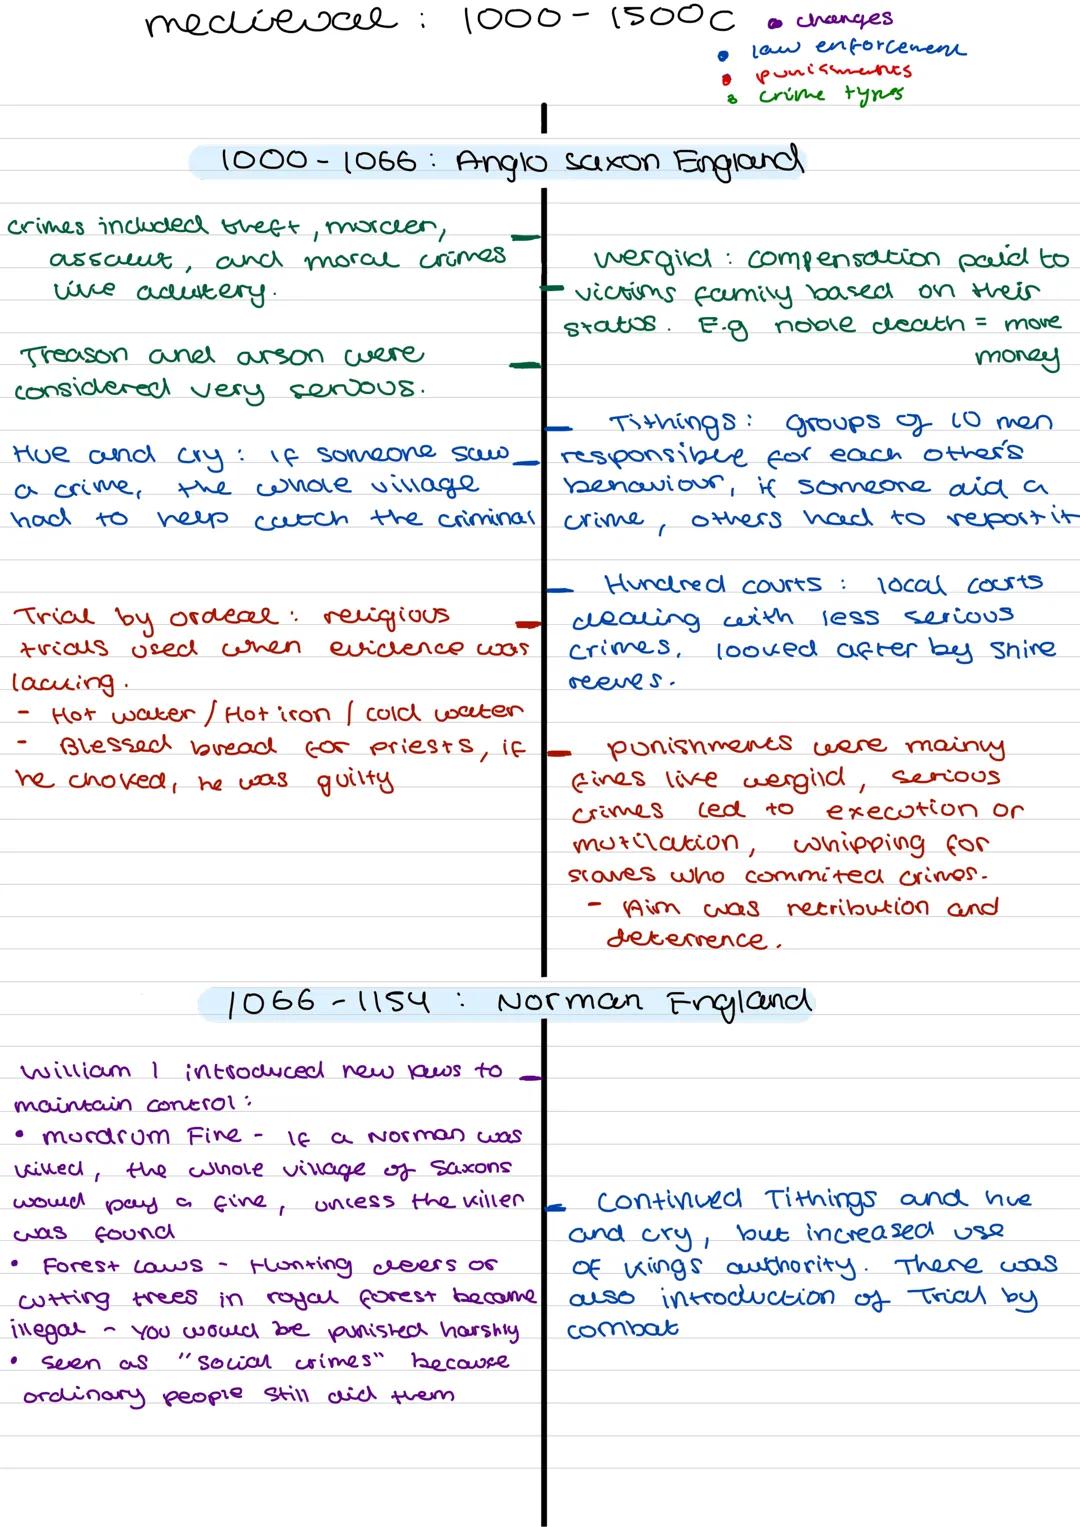 medieval : 1000 - 1500c
• changes
• law enforcement
• punishments
• crime types
1000 - 1066 : Anglo saxon England
crimes included theft, murder,
assault, and moral crimes
like adultery.
Treason and arson were
considered very serious.
Hue and cry : if someone saw
a crime, the whole village
had to help catch the criminal
Trial by ordeal : religious
trials used when evidence was
lacking.
- Hot water / Hot iron / cold water
- Blessed bread for priests, if
he choked, he was guilty
wergild : compensation paid to
victims family based on their
status. E.g noble death = more
money
Tithings : groups of 10 men
responsible for each other's
behaviour, if someone did a
crime, others had to report it
Hundred courts : local courts
dealing with less serious
crimes, looked after by shire
reeves.
punishments were mainly
fines like wergild, serious
crimes led to execution or
mutilation, whipping for
slaves who commited crimes.
- Aim was retribution and
deterrence.
1066 - 1154 : Norman England
William I introduced new laws to
maintain control :
• murdrum Fine - If a Norman was
killed, the whole village of Saxons
would pay a fine, unless the killer
was found
• Forest Laws - Hunting deers or
cutting trees in royal forest became
illegal - you would be punished harshly
• seen as "social crimes" because
ordinary people still did them
continued Tithings and hue
and cry, but increased use
of kings authority. There was
also introduction of Trial by
combat